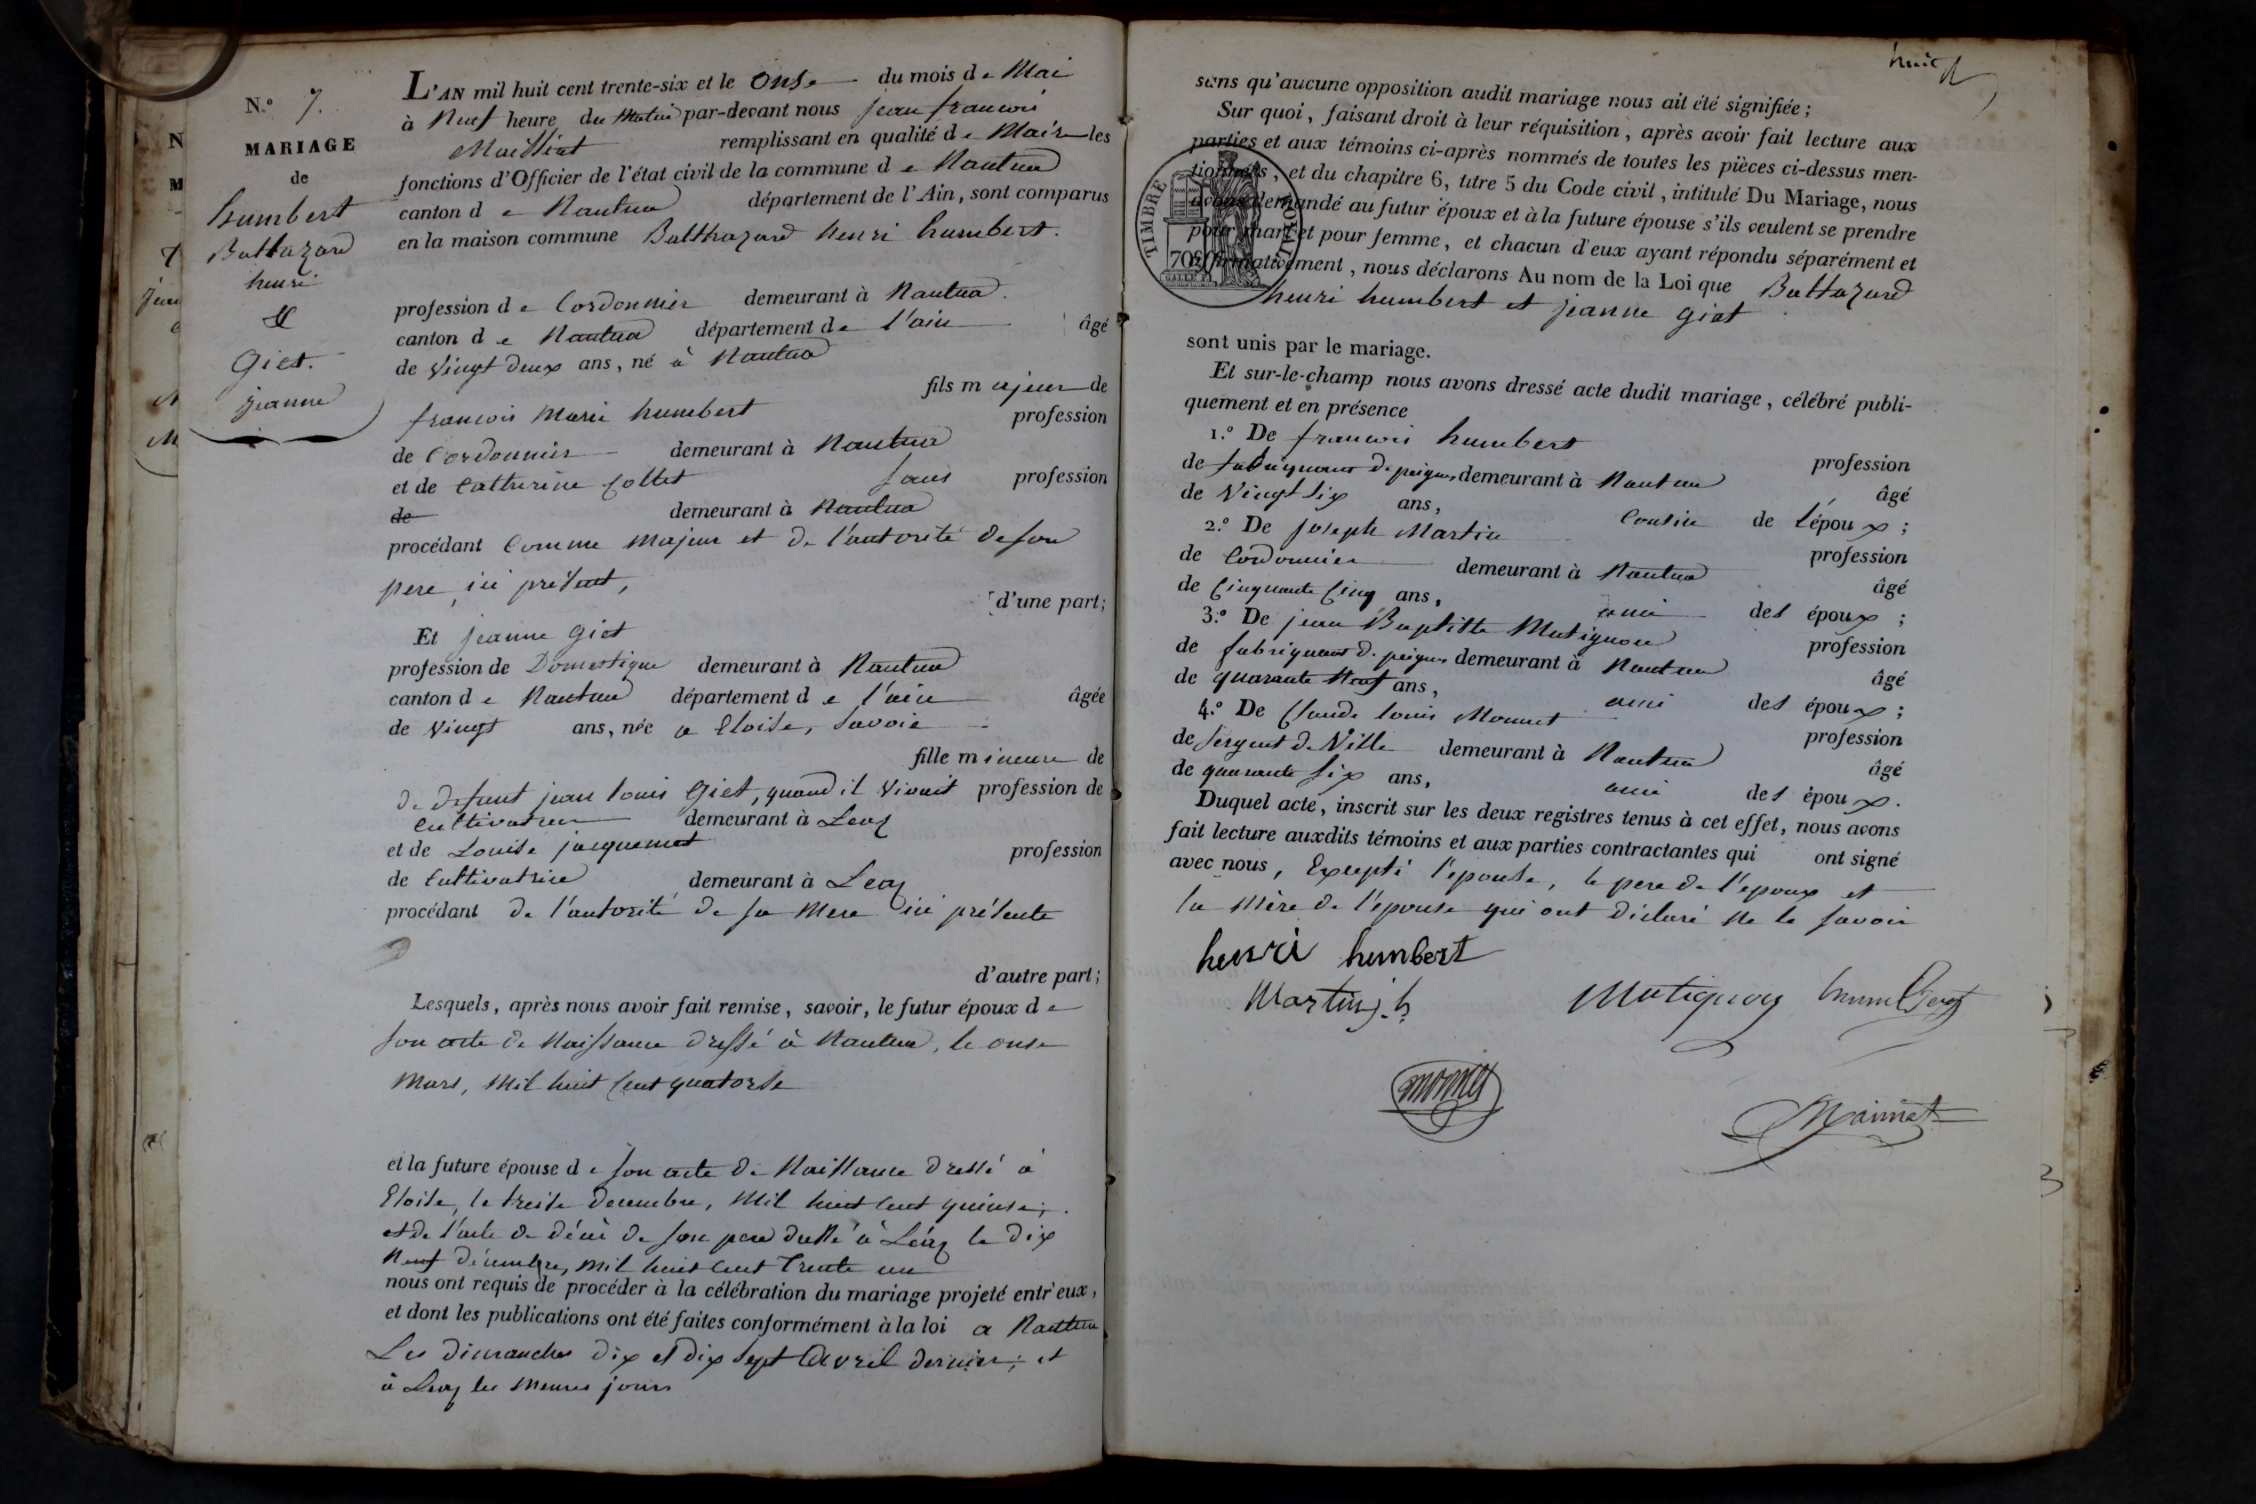 N.º 7.
MARIAGE
de
humbert
Baltazard
henri
&
Giet.
jeanne
L'AN mil huit cent trente-six et le onse du mois de Mai
à Neuf heure du Matin par-devant nous jean francois
Maissiat remplissant en qualité de Maire les
fonctions d'Officier de l'état civil de la commune de Nantua
canton de Nantua département de l'Ain, sont comparus
en la maison commune Balthazard henri humbert.
profession de Cordonnier demeurant à Nantua.
canton de Nantua département de l'ain âgé
de vingt deux ans, né à Nantua
fils majeur de
francois Marie humbert profession
de Cordonnier demeurant à Nantua
et de Catherine Collet sans profession
de demeurant à Nantua
procédant Comme Majeur et de l'autorité de son
pere ici présent,
d'une part;
Et jeanne Giet
profession de Domestique demeurant à Nantua
canton de Nantua département de l'ain âgée
de vingt ans, née a Eloise, Savoie
fille mineure de
de defunt jean louis Giet, quand il vivait profession de
cultivateur demeurant à Leaz
et de Louise jacquemet profession
de Cultivatrice demeurant à Leaz
procédant de l'autorité de sa Mere ici présente
d'autre part;
Lesquels, après nous avoir fait remise, savoir, le futur époux de
son acte de Naissance dressé à Nantua, le onse
Mars, Mil huit Cent quatorse
et la future épouse de son acte de Naissance dressé à
Eloise, le treise Decembre, Mil huit Cent quinse;
et de l'acte de décès de son pere dressé à Léaz le dix
Neuf Décembre, Mil huit Cent Trente un
nous ont requis de procéder à la célébration du mariage projeté entr'eux,
et dont les publications ont été faites conformément à la loi a Nantua
Les dimanches dix et dix sept Avril dernier; et
à Leaz les Memes jours
huit
sans qu'aucune opposition audit mariage nous ait été signifiée;
Sur quoi, faisant droit à leur réquisition, après avoir fait lecture aux
parties et aux témoins ci-après nommés de toutes les pièces ci-dessus men-
tionnées, et du chapitre 6, titre 5 du Code civil, intitulé Du Mariage, nous
avons demandé au futur époux et à la future épouse s'ils veulent se prendre
pour mari et pour femme, et chacun d'eux ayant répondu séparément et
affirmativement, nous déclarons Au nom de la Loi que Baltazard
henri humbert et jeanne giet
TIMBRE ROYAL
70
sont unis par le mariage.
Et sur-le-champ nous avons dressé acte dudit mariage, célébré publi-
quement et en présence
1.º De francois humbert profession
de fabriquant de peignes demeurant à Nantua âgé
de vingt six ans, Cousin de l'époux;
2.º De joseph Martin profession
de Cordonnier demeurant à Nantua âgé
de Cinquante Cinq ans, ami des époux;
3.º De jean Baptiste Matignon profession
de fabriquant de peignes demeurant à Nantua âgé
de quarante Neuf ans, ami des époux;
4.º De Claude louis Monnet profession
de Sergent de Ville demeurant à Nantua âgé
de quarante six ans, ami des époux.
Duquel acte, inscrit sur les deux registres tenus à cet effet, nous avons
fait lecture auxdits témoins et aux parties contractantes qui ont signé
avec nous, Excepté l'épouse, le pere de l'epoux et
la Mère de l'épouse qui ont déclaré Ne le savoir
henri humbert
Martin j.h Matignon humbert
monnet
Maissiat
3